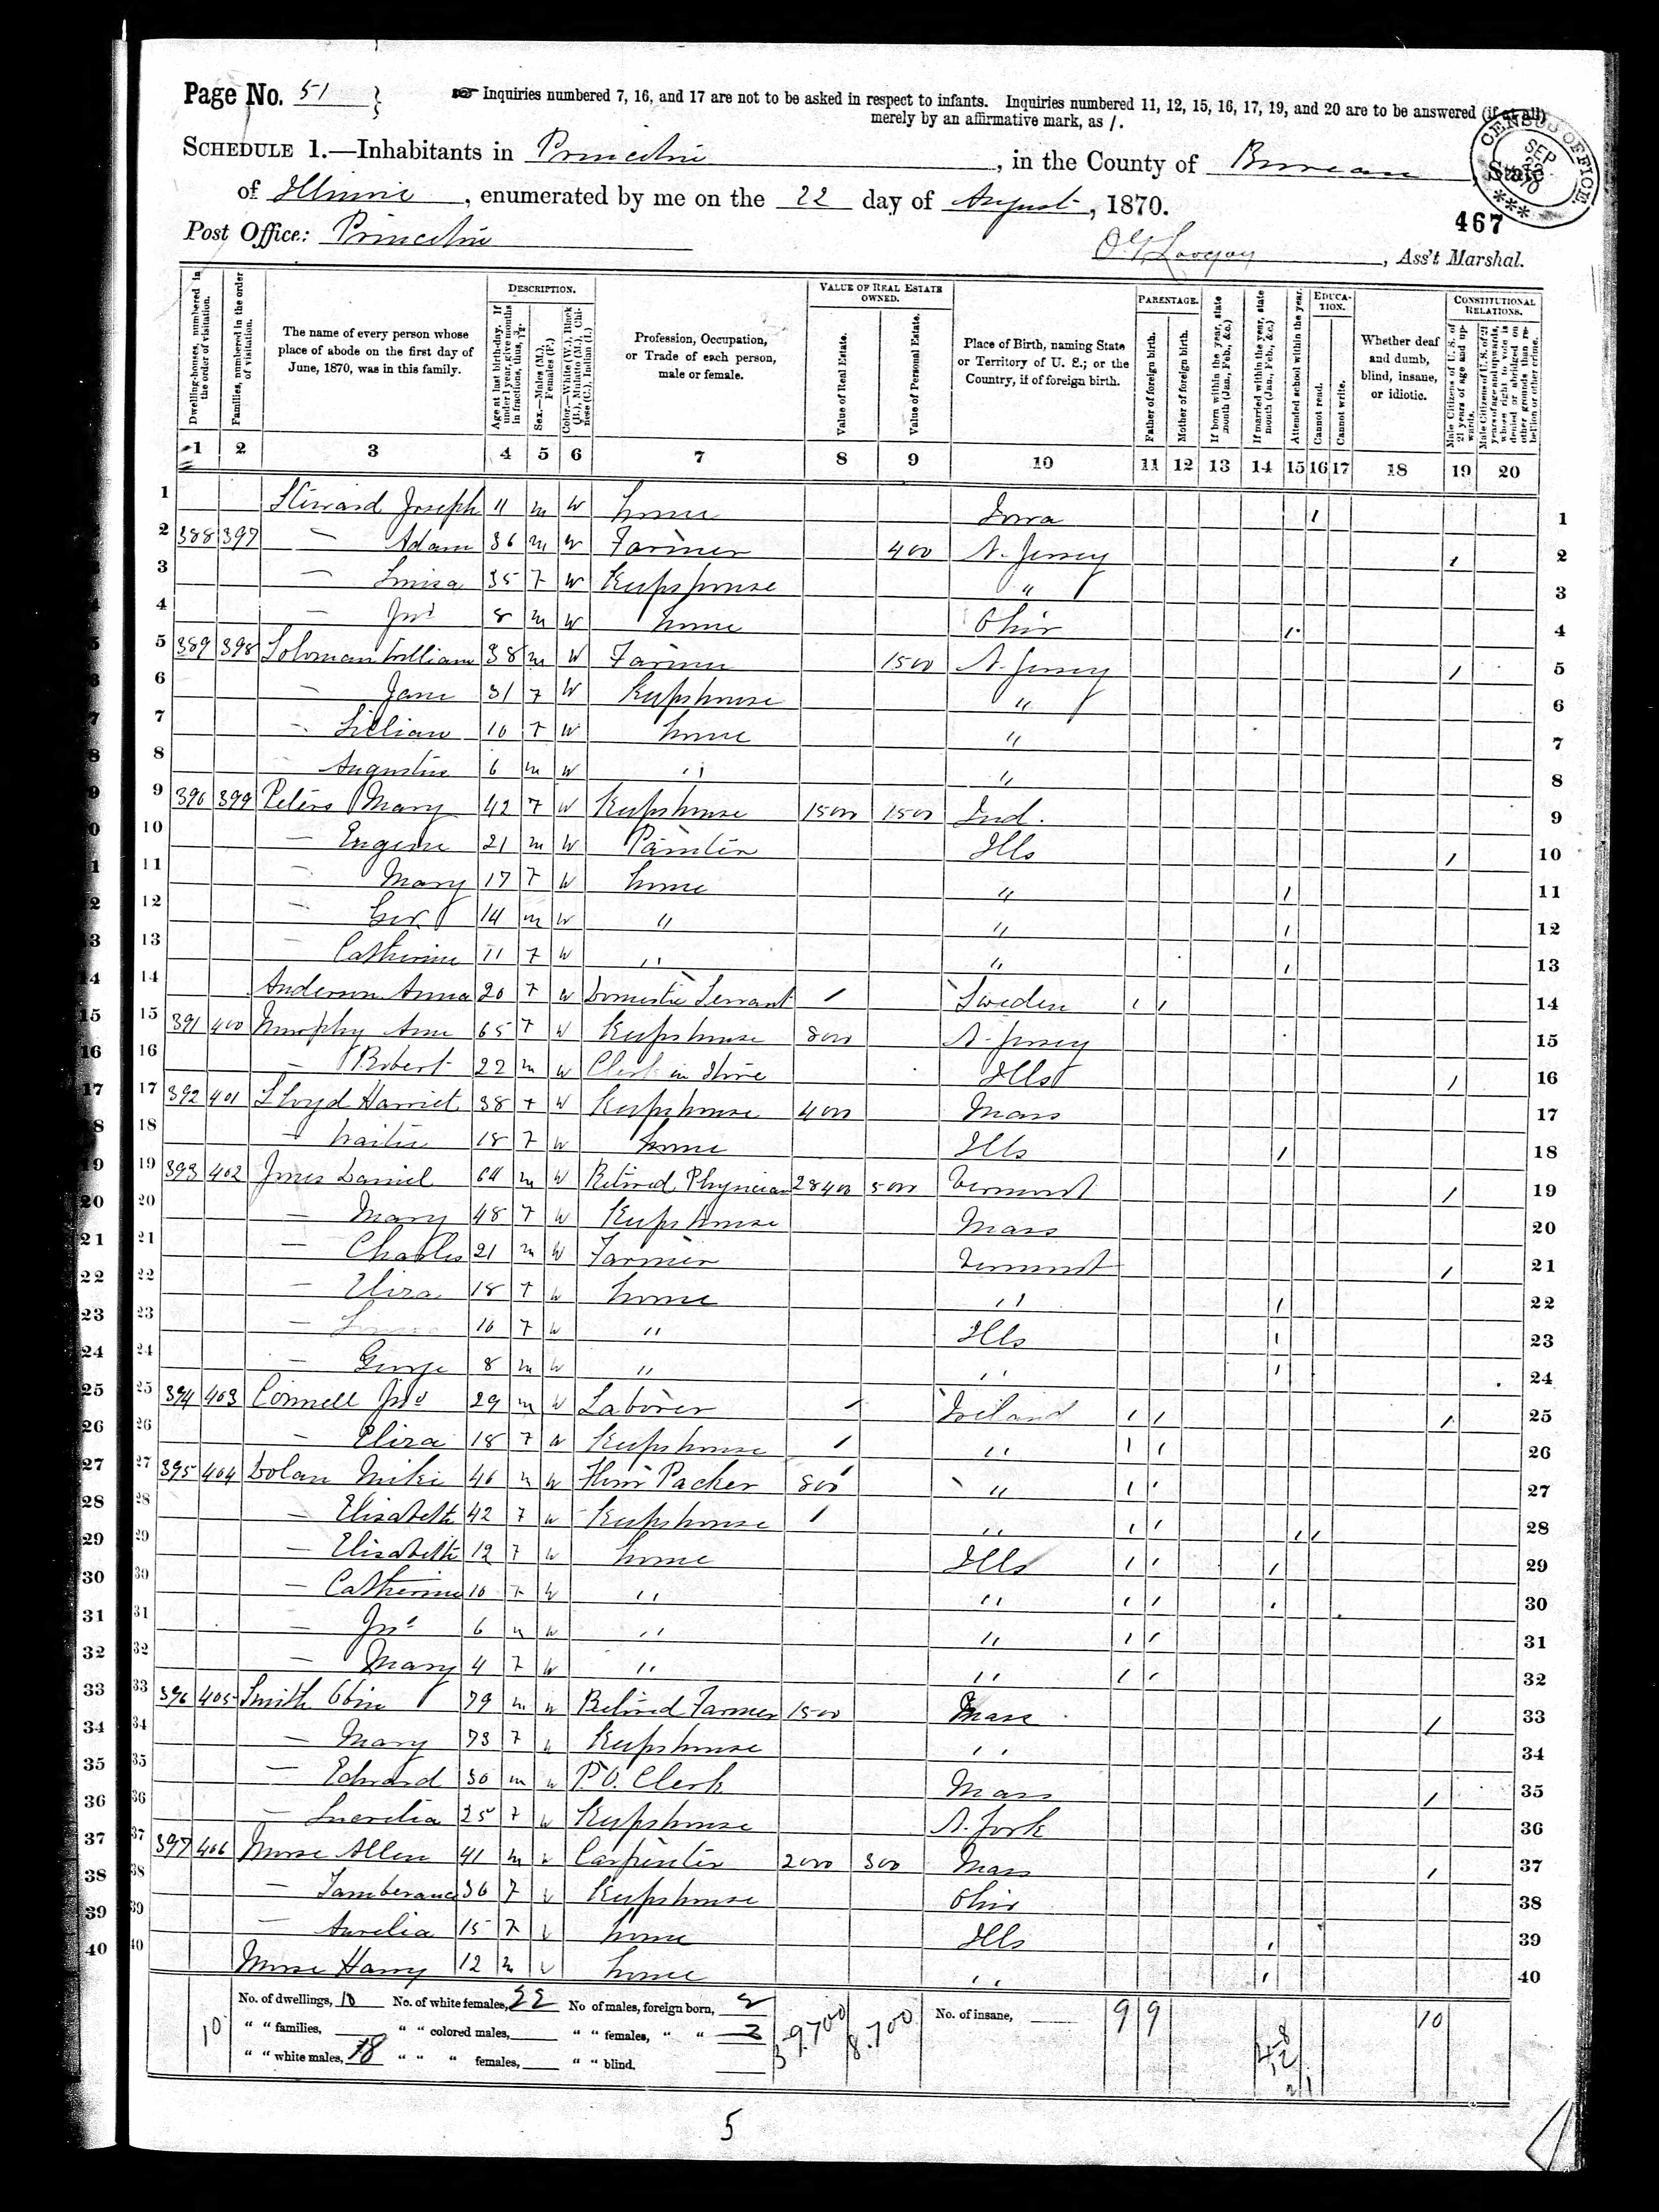 Page No. 51
☞ Inquiries numbered 7, 16, and 17 are not to be asked in respect to infants. Inquiries numbered 11, 12, 15, 16, 17, 19, and 20 are to be answered (if at all)
merely by an affirmative mark, as /.
CENSUS OFFICE SEP 22 1870
SCHEDULE 1.—Inhabitants in Princeton, in the County of Bureau, State
of Illinois, enumerated by me on the 22 day of August, 1870.
467
Post Office: Princeton
Lovejoy, Ass't Marshal.
Dwelling-houses, numbered in the order of visitation.
Families, numbered in the order of visitation.
The name of every person whose place of abode on the first day of June, 1870, was in this family.
DESCRIPTION.
Age at last birth-day. If under 1 year, give months in fractions, thus, 3/12.
Sex.—Males (M.), Females (F.)
Color.—White (W.), Black (B.), Mulatto (M.), Chinese (C.), Indian (I.)
Profession, Occupation, or Trade of each person, male or female.
VALUE OF REAL ESTATE OWNED.
Value of Real Estate.
Value of Personal Estate.
Place of Birth, naming State or Territory of U. S.; or the Country, if of foreign birth.
PARENTAGE.
Father of foreign birth.
Mother of foreign birth.
If born within the year, state month (Jan., Feb., &c.)
If married within the year, state month (Jan., Feb., &c.)
Attended school within the year.
EDUCATION.
Cannot read.
Cannot write.
Whether deaf and dumb, blind, insane, or idiotic.
CONSTITUTIONAL RELATIONS.
Male Citizens of U. S. of 21 years of age and upwards.
Male Citizens of U. S. of 21 years of age and upwards, whose right to vote is denied or abridged on other grounds than rebellion or other crime.
1 2 3 4 5 6 7 8 9 10 11 12 13 14 15 16 17 18 19 20
1 Joseph 11 m W home Iowa / 1
2 388 397 — Adam 36 m W Farmer 400 N. Jersey / 2
3 — Louisa 35 F W Keeps house " 3
4 — Jno 8 m W home Ohio / 4
5 389 398 Soloman William 38 m W Farmer 1500 N. Jersey / 5
6 — Jane 31 F W Keeps house " 6
7 — Lillian 10 F W home " 7
8 — Augustus 6 m W " " 8
9 390 399 Peters Mary 42 F W Keeps house 1500 1500 Ind. 9
10 — Eugene 21 m W Painter Ills / 10
11 — Mary 17 F W home " / 11
12 — Geo 14 m W " " / 12
13 — Catherine 11 F W " " / 13
14 Anderson Anna 20 F W Domestic Servant / Sweden / / 14
15 391 400 Murphy Ann 65 F W Keeps house 800 N. Jersey 15
16 — Robert 22 m W Clerk in Store Ills / 16
17 392 401 Lloyd Harriet 38 F W Keeps house 400 Mass 17
18 — 18 F W home Ills / 18
19 393 402 Jones Daniel 64 m W Retired Physician 28400 5000 Vermont / 19
20 — Mary 48 F W Keeps house Mass 20
21 — Charles 21 m W Farmer Vermont / 21
22 — Eliza 18 F W home " / 22
23 — 10 F W " Ills / 23
24 — George 8 m W " " / 24
25 394 403 Connell Jno 29 m W Laborer / Ireland / / / 25
26 — Eliza 18 F W Keeps house / " / / 26
27 395 404 Dolan Mike 40 m W Packer 800 " / / 27
28 — Elisabeth 42 F W Keeps house / " / / / / 28
29 — Elisabeth 12 F W home Ills / / / 29
30 — Catherine 10 F W " " / / / 30
31 — Jno 6 m W " " / / 31
32 — Mary 4 F W " " / / 32
33 396 405 Smith 79 m W Retired Farmer 1500 Mass / 33
34 — Mary 73 F W Keeps house " 34
35 — Edward 30 m W P.O. Clerk Mass / 35
36 — Lucretia 25 F W Keeps house N. York 36
37 397 406 Morse Allen 41 m W Carpenter 2000 300 Mass / 37
38 — 36 F W Keeps house Ohio 38
39 — Aurelia 15 F W home Ills / 39
40 Morse Harry 12 m W home " / 40
No. of dwellings, 10 No. of white females, 22 No of males, foreign born, 2 No. of insane, 9 9 10
10 " " families, " " colored males, " " females, " " 39700 8.700
" " white males, 18 " " " females, " " blind.
5